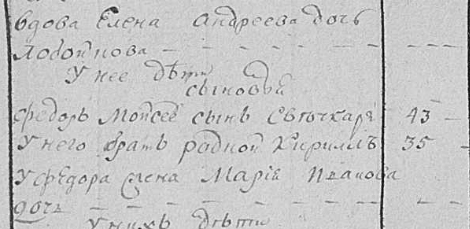 вдова Елена Андреева дочь
Лобойкова — — — — — — — — —
У нее дѣти
сыновья
Федоръ Моисеевъ сынъ Свѣчкарь 43 —
У него братъ родной Кирилъ 35 —
У Федора жена Марiя Иванова
дочь — — — — — — — —
У нихъ дѣти